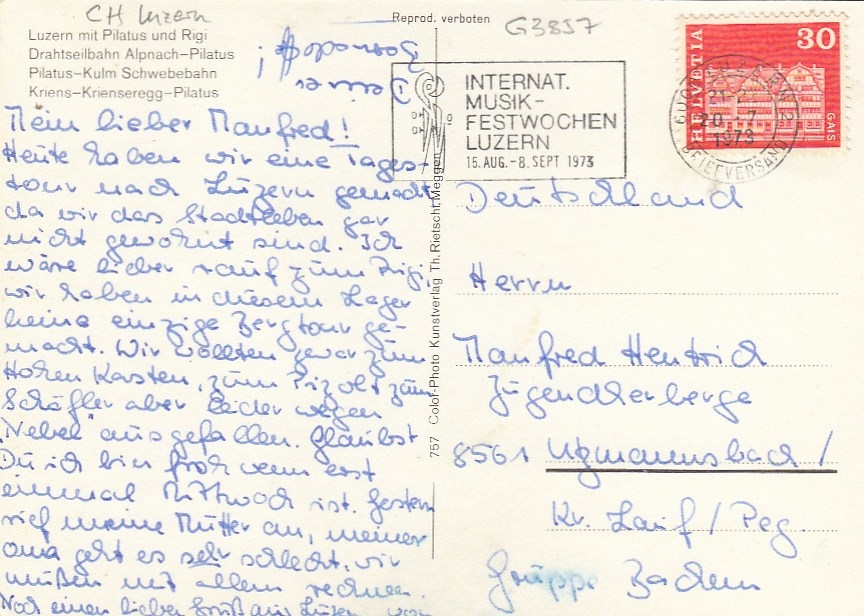 CH Luzern
Luzern mit Pilatus und Rigi
Drahtseilbahn Alpnach-Pilatus
Pilatus-Kulm Schwebebahn
Kriens-Krienseregg-Pilatus
Reprod. verboten
G3857
Mein lieber Manfred!
Heute haben wir eine Tages-
tour nach Luzern gemacht,
da wir das Stadtleben gar
nicht gewohnt sind. Ich
wäre lieber rauf zum Rigi,
wir haben in diesem Lager
keine einzige Bergtour ge-
macht. Wir wollten zwar zum
Hohen Kasten, zum Pizolt zum
Schäfler aber leider wegen
"Nebel" ausgefallen. Glaubst
Du ich bin froh wenn erst
einmal Mittwoch ist. Gestern
rief meine Mutter an, meiner
Oma geht es sehr schlecht, wir
müßen mit allem rechnen.
Noch einen lieben Gruß aus Luzern von
Deiner
757 Color-Photo Kunstverlag Th. Rietschi, Meggen
INTERNAT.
MUSIK-
FESTWOCHEN
LUZERN
15. AUG. - 8. SEPT 1973
HELVETIA
30
GAIS
1973
BRIEFVERSAND
Deutschland
Herrn
Manfred Hentrich
Jugendherberge
8561 Utzmannsbach /
Kr. Lauf / Peg.
Gruppe Bachem